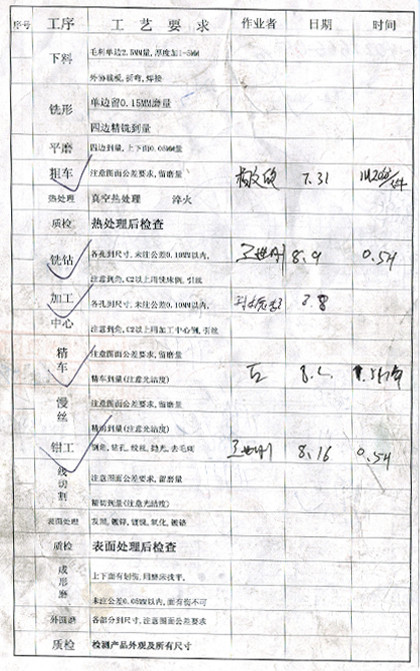 序号 工序 工艺要求 作业者 日期 时间
下料 毛料单边2.5MM量,厚度加1-3MM
折弯,焊接
铣形 单边留0.15MM磨量
四边精铣到量
平磨 四边到量,上下留0.08MM量
粗车 注意图面公差要求,留磨量 7.31
热处理 真空热处理 淬火
质检 热处理后检查
铣钻 各孔到尺寸,未注公差0.10MM以内, 8.9 0.5H
注意到角,C2以上用铣床倒,引丝
加工中心 各孔到尺寸,未注公差0.10MM以内, 8.8
注意到角,C2以上用加工中心倒,引丝
精车 注意图面公差要求,留磨量
精车到量(注意光洁度)
慢丝 注意图面公差要求,留磨量
精割到量(注意光洁度)
钳工 倒角,钻孔,绞丝,抛光,去毛刺 8.16 0.5H
线切割 注意图面公差要求,留磨量
精切到量(注意光洁度)
表面处理 发黑,镀锌,镀镍,氧化,镀铬
质检 表面处理后检查
成形磨 上下面有划伤,用磨床找平,
未注公差0.05MM以内,面有伤不可
外圆磨 各部分到尺寸,注意图面公差要求
质检 检测产品外观及所有尺寸